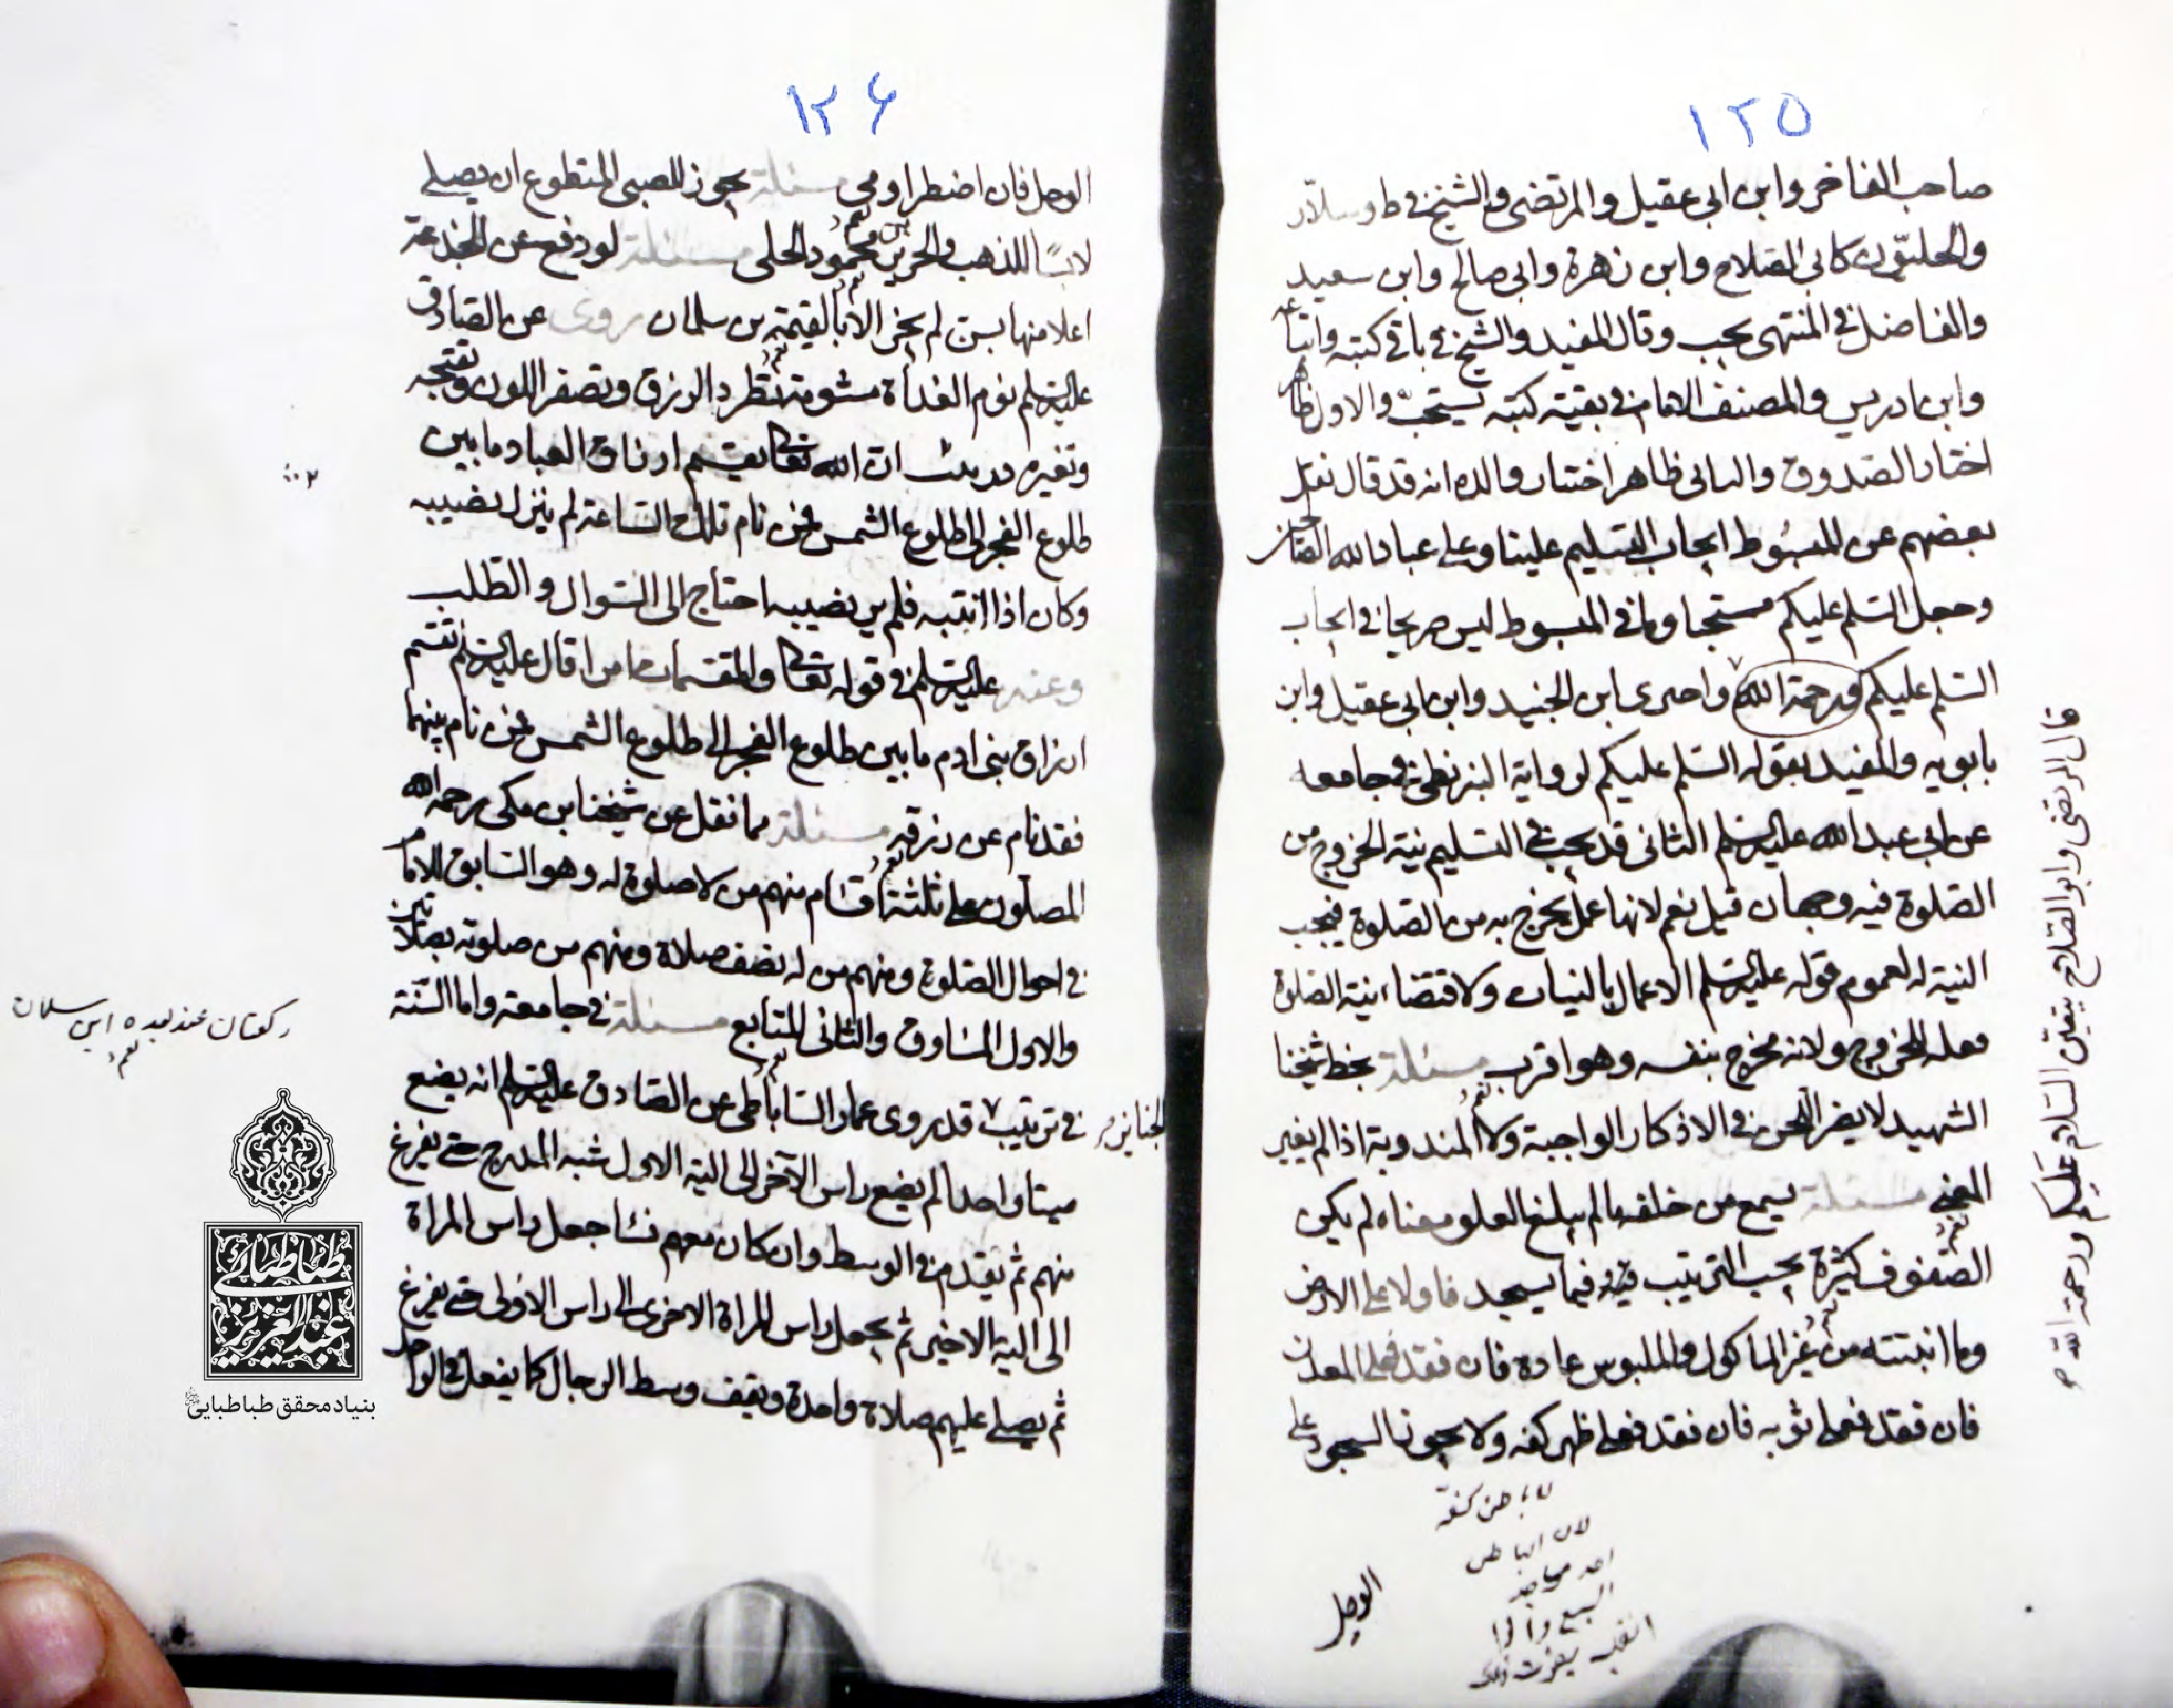 ١٢٥
صاحب الفاخر وابن ابى عقيل والمرتضى والشيخ في ط وسلّار
والحلبيّون كابى الصلاح وابن زهرة وابى صالح وابن سعيد
والفاضل في المنتهى يجب وقال المفيد والشيخ في باقى كتبه واتباعه
وابن ادريس والمصنف الامام في بقيته كتبه يستحبّ والاول ظاهر
اختار الصدوق والثانى ظاهر اختيار والده انه قد قال نقل
بعضهم عن المبسوط ايجاب التسليم علينا وعلى عباد الله الصالحين
وجعل السلم عليكم مستحبا وما في المبسوط ليس صريحا في ايجاب
السلم عليكم ورحمة الله واجترى ابن الجنيد وابن ابى عقيل وابن
بابويه والمفيد بقوله السلم عليكم لرواية البزنطى في جامعه
عن ابى عبد الله عليه السلم الثانى قد يجب في التسليم نية الخروج من
الصلوة فيه وجهان قيل نعم لانها عمل يخرج به من الصلوة فيجب
النية له لعموم قوله عليه السلم الاعمال بالنيات ولاقتضاء نية الصلوة
فعله للخروج ولانه مخرج بنفسه وهو اقرب مسئلة بخط شيخنا
الشهيد لا يضر اللحن في الاذكار الواجبة ولا المندوبة اذا لم يغير
المعنى مسئلة يسمع من خلفه ما لم يبلغ العلو معناه لم يكن
الصفوف كثيرة يجب الترتيب فيه فيما يسجد فاولا على الارض
وما انبتته من غير الماكول والملبوس عادة فان فقد فعلى المعدن
فان فقد فعلى ثوبه فان فقد فعلى ظهر كفه ولا يجوز السجود على
لا باطن كفه
لان الباطن
احد مواضع
السبع
الوحل
قال المرتضى وابو الصلاح يتعيّن السلام عليكم ورحمة الله
١٢٦
الوحل فان اضطر اومى مسئلة يجوز للصبى المتطوع ان يصلى
لابسًا للذهب والحرير بن محمود الحلى مسئلة لو دفع عن الجذعة
اعلا منها بسن لم يجز الا بالقيمة بن سلمان روى عن الصادق
عليه السلم نوم الغداة مشومة تطرد الرزق وتصفر اللون وتقبحه
وتغيره حديث ان الله تعالى يقسم ارزاق العباد ما بين
طلوع الفجر الى طلوع الشمس فمن نام تلك الساعة لم ينزل نصيبه
وكان اذا انتبه فلم ير نصيبه احتاج الى السوال والطلب
وعنه عليه السلم في قوله تعالى والمقسمات امرا قال عليه السلم تقسم
ارزاق بنى ادم ما بين طلوع الفجر الى طلوع الشمس فمن نام بينهما
فقد نام عن رزقه مسئلة مما نقل عن شيخنا ابن مكى رحمه الله
المصلون على ثلثة اقسام منهم من لا صلوة له وهو السابق للامام
في احوال الصلوة ومنهم من له نصف صلاة ومنهم من صلوته بصلاتين
والاول المساوق والثانى المتابع مسئلة في جامعه واما السنّة
في ترتيب الجنايز قد روى عمار الساباطى عن الصادق عليه السلم انه يضع
ميتا واحدا ثم يضع راس الآخر الى الية الاول شبه المدرج حتى يفرغ
منهم ثم يقدم في الوسط وان كان معهم نساء جعل راس المراة
الى الية الاخير ثم يجعل راس المراة الاخرى الى راس الاولى حتى يفرغ
ثم يصلى عليهم صلاة واحدة ويقف وسط الرجال كما يفعل في الواحد
ركعتان عند بعده ابن سلمان
طباطبائى
عبدالعزيز
بنیاد محقق طباطبایی